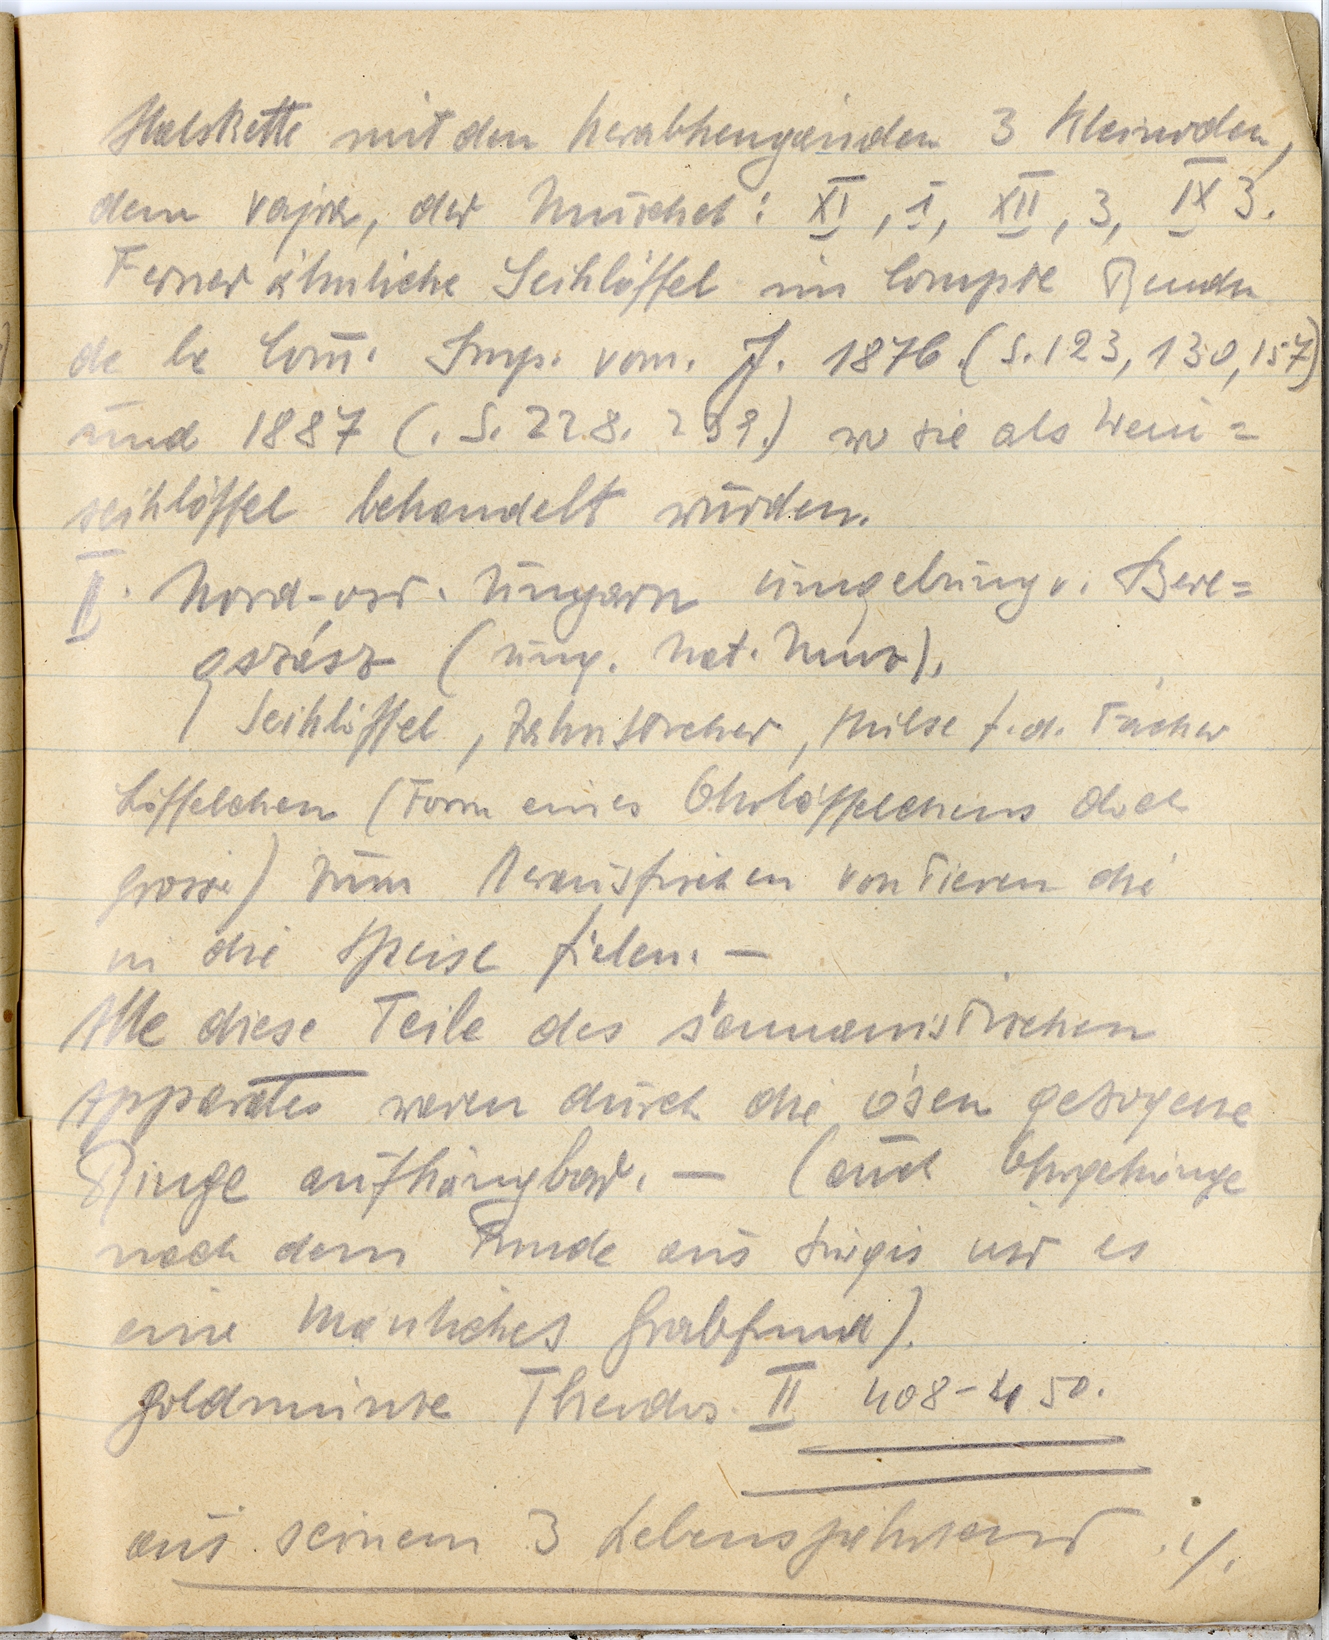 Halskette mit den herabhengänden 3 Kleinoden,
dem vajra, der Muschel: XI, 1, XII, 3, IX 3.
Ferner ähnliche Seihlöffel im Compte Rendu
de la Com. Imp. vom. J. 1876 (S. 123, 130, 157)
und 1887 (. S. 228. 239.) wo sie als Wein=
seihlöffel behandelt wurden.
II. Nord-ost. Ungarn umgebung v. Bere=
gszász (ung. Nat. Mus).
Seihlöffel, Zahnstocher, Hülse f. d. Fächer
Löffelchen (Form eines Ohrlöffelchens doch
grosse) zum Herausfischen von Tieren die
in die Speise fielen. —
Alle diese Teile des šamanistischen
Apparates waren durch die ösen gezogene
Ringe aufhängbar. — (auch Ohrgehänge
nach dem Funde aus ist es
eine Manliches Grabfund).
Goldmünze Theodos. II 408–450.
aus seinem 3 Lebensjahrzent ./.